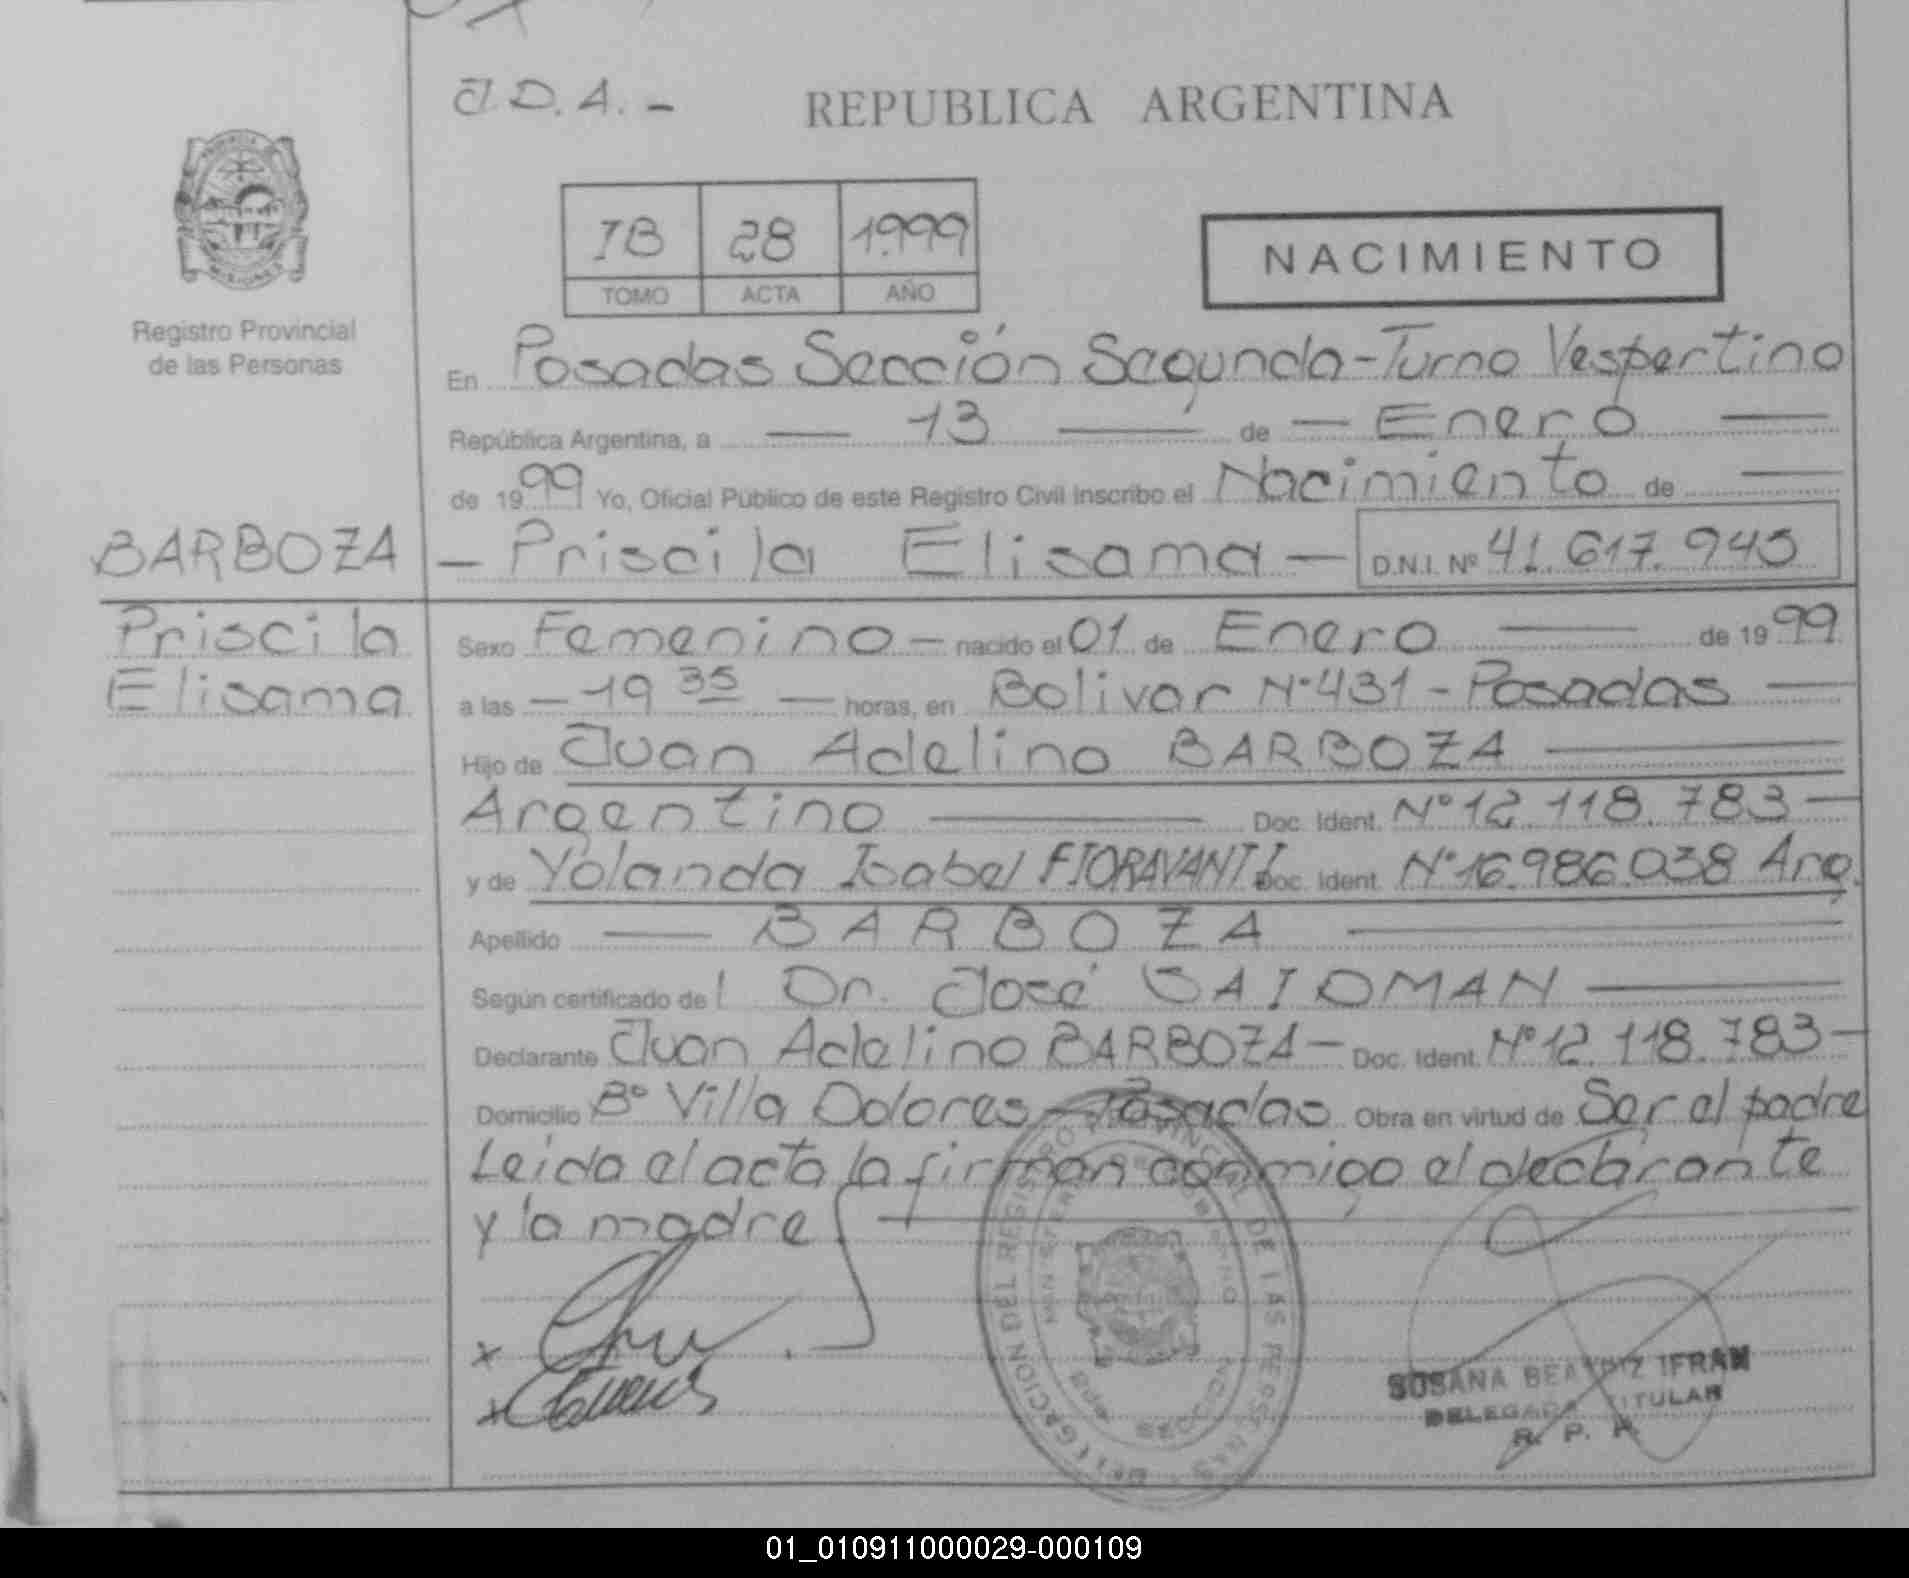 J.D.A. -
REPUBLICA ARGENTINA
PROVINCIA
MISIONES
Registro Provincial
de las Personas
IB 28 1999
TOMO ACTA AÑO
NACIMIENTO
En Posadas Sección Segunda - Turno Vespertino
República Argentina, a — 13 — de — Enero —
de 1999 Yo, Oficial Público de este Registro Civil Inscribo el Nacimiento de —
BARBOZA — Priscila Elisama — D.N.I. Nº 41.617.945
Priscila
Elisama
Sexo Femenino — nacido el 01 de Enero — de 1999
a las — 19 35 — horas, en Bolivar Nº 431 - Posadas —
Hijo de Juan Adelino BARBOZA —
Argentino — Doc. Ident. Nº 12.118.783 —
y de Yolanda Isabel FIORAVANTI Doc. Ident. Nº 16.986.038 Arg.
Apellido — BARBOZA —
Según certificado del Dr. José SAIDMAN —
Declarante Juan Adelino BARBOZA — Doc. Ident. Nº 12.118.783 —
Domicilio Bº Villa Dolores - Posadas Obra en virtud de Ser el padre
Leída el acta la firman conmigo el declarante
y la madre
DELEGACION DEL REGISTRO PROVINCIAL DE LAS PERSONAS
MINISTERIO DE GOBIERNO
SUSANA BEATRIZ IFRAN
DELEGADA TITULAR
R. P. P.
01_010911000029-000109